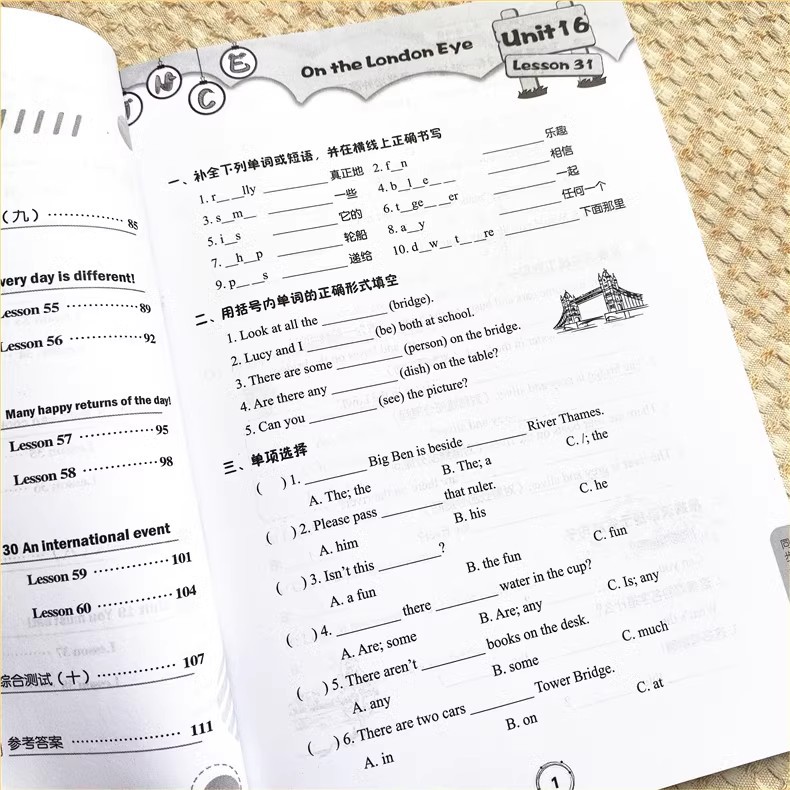 （九）
85
very day is different!
Lesson 55 89
Lesson 56 92
Many happy returns of the day!
Lesson 57 95
Lesson 58 98
30 An international event
Lesson 59 101
Lesson 60 104
综合测试（十） 107
参考答案 111
N C E
On the London Eye
Unit 16
Lesson 31
一、补全下列单词或短语，并在横线上正确书写
1. r__ __lly ________ 真正地 2. f__n ________ 乐趣
3. s__m__ ________ 一些 4. b__l__e__ __ ________ 相信
5. i__s ________ 它的 6. t__ge__ __er ________ 一起
7. __h__p ________ 轮船 8. a__y ________ 任何一个
9. p__ __s ________ 递给 10. d__w__ t__ __re ________ 下面那里
二、用括号内单词的正确形式填空
1. Look at all the ________ (bridge).
2. Lucy and I ________ (be) both at school.
3. There are some ________ (person) on the bridge.
4. Are there any ________ (dish) on the table?
5. Can you ________ (see) the picture?
三、单项选择
( ) 1. ________ Big Ben is beside ________ River Thames.
A. The; the B. The; a C. /; the
( ) 2. Please pass ________ that ruler.
A. him B. his C. he
( ) 3. Isn't this ________?
A. a fun B. the fun C. fun
( ) 4. ________ there ________ water in the cup?
A. Are; some B. Are; any C. Is; any
( ) 5. There aren't ________ books on the desk.
A. any B. some C. much
( ) 6. There are two cars ________ Tower Bridge.
A. in B. on C. at
同
步
1